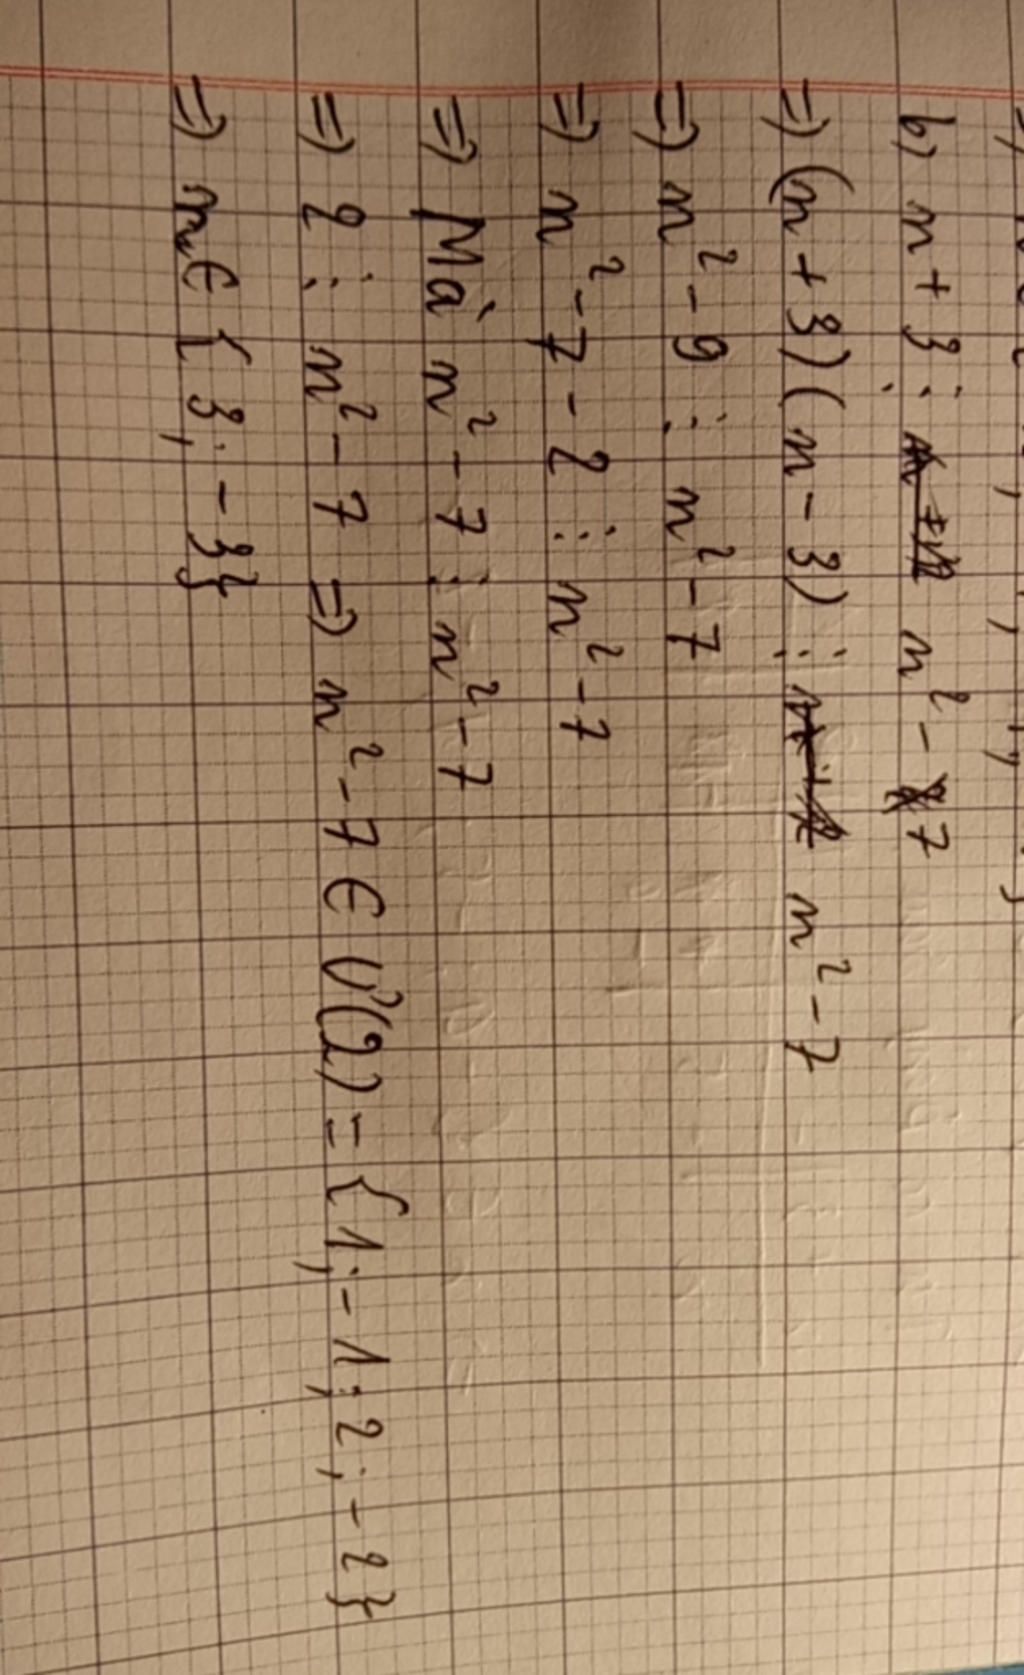 b) n + 3 ⋮ n² - 7
=) (n + 3)(n - 3) ⋮ n² - 7
=) n² - 9 ⋮ n² - 7
=) n² - 7 - 2 ⋮ n² - 7
=) Mà n² - 7 ⋮ n² - 7
=) 2 ⋮ n² - 7 =) n² - 7 ∈ Ư(2) = {1; -1; 2; -2}
=) n ∈ {3; -3}